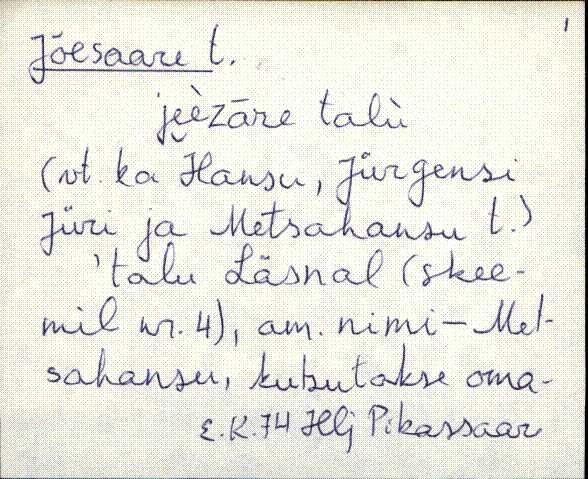 1
Jõesaare t.
jeèzāre talù
(vt. ka Hansu, Jürgensi
Jüri ja Metsahansu t.)
'talu Läsnal (skee-
mil nr. 4), am. nimi — Met-
sahansu, kutsutakse oma-
E.K. 74 Hlj Pikassaar